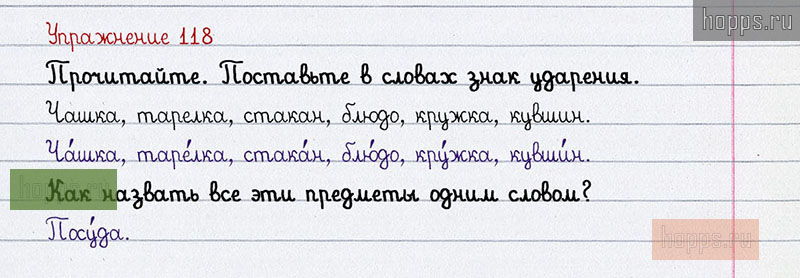 hopps.ru
Упражнение 118
Прочитайте. Поставьте в словах знак ударения.
Чашка, тарелка, стакан, блюдо, кружка, кувшин.
Ча́шка, таре́лка, стака́н, блю́до, кру́жка, кувши́н.
Как назвать все эти предметы одним словом?
Посу́да.
hopps.ru